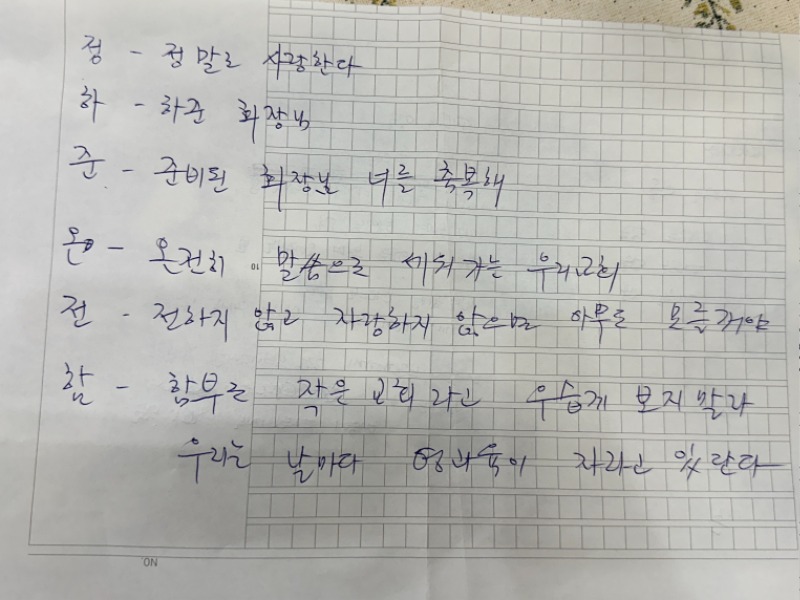 정 - 정말로 사랑한다
하 - 하준 회장님
준 - 준비된 회장님 너를 축복해
온 - 온전히 말씀으로 세워가는 우리교회
전 - 전하지 않고 자랑하지 않으면 아무도 모를거야
함 - 함부로 작은교회라고 우습게 보지말라
우리는 날마다 영과육이 자라고 있단다
ON